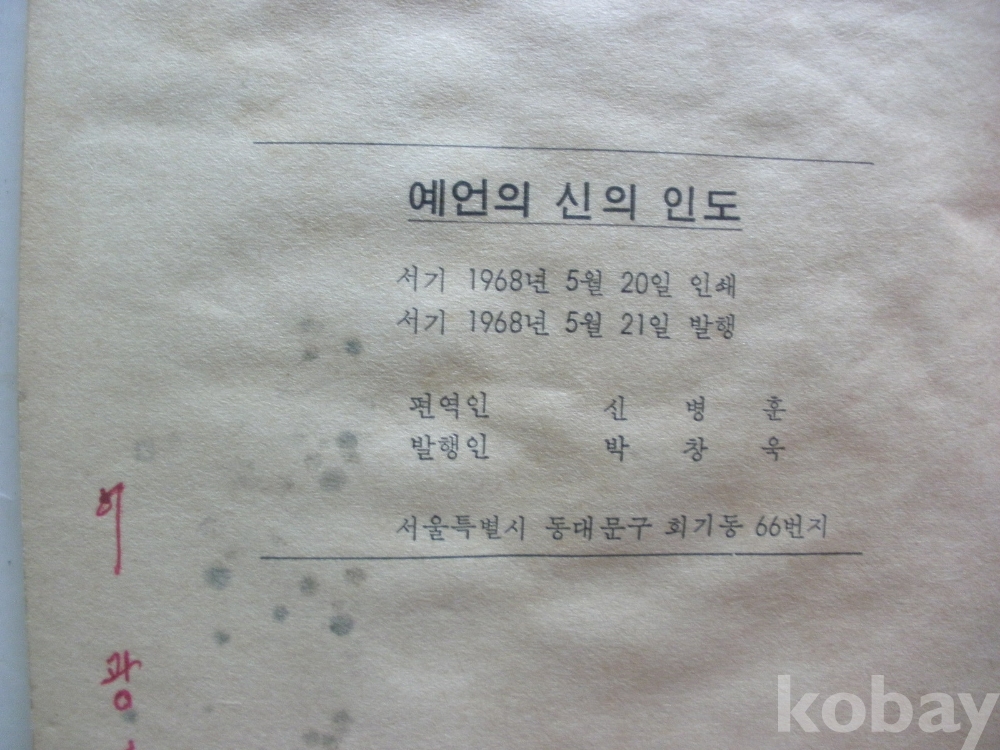 예언의 신의 인도
서기 1968년 5월 20일 인쇄
서기 1968년 5월 21일 발행
편역인 신 병 훈
발행인 박 창 욱
서울특별시 동대문구 회기동 66번지
이
광
kobay